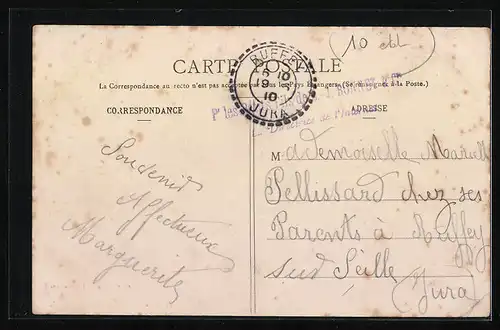 10 dbl
CARTE POSTALE
RUFFEY
10
9
10
JURA
La Correspondance au recto n'est pas acceptée par tous les Pays Etrangers. (Se renseigner à la Poste.)
CORRESPONDANCE
ADRESSE
La Directrice de
Souvenir
Affectueux
Marguerite
Mademoiselle
Pellissard chez ses
Parents à Ruffey
sur Seille
(Jura)